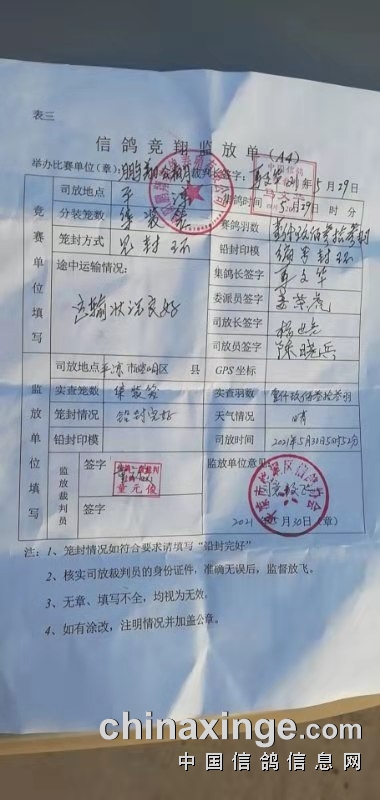 表三
信鸽竞翔监放单(A4)
举办比赛单位(章): 签字: 2021年5月29日
竞赛单位填写
司放地点 平凉 集鸽时间 5月29日 时 分
分装笼数 集装笼 赛鸽羽数
笼封方式 铅封印模
途中运输情况: 运输状况良好
集鸽长签字
委派员签字
司放长签字
司放员签字 陈晓兵
监放单位填写
司放地点 平凉市崆峒区 县 GPS坐标
实查笼数 集装笼 实查羽数
笼封情况 铅封完好 天气情况 晴
铅封印模 司放时间 2021年5月30日5时52分
监放裁判员
签字 童元俊
签字
监放单位意见:
2021年5月30日(章)
注:1、笼封情况如符合要求请填写“铅封完好”
2、核实司放裁判员的身份证件,准确无误后,监督放飞。
3、无章、填写不全,均视为无效。
4、如有涂改,注明情况并加盖公章。
chinaxinge.com
中国信鸽信息网